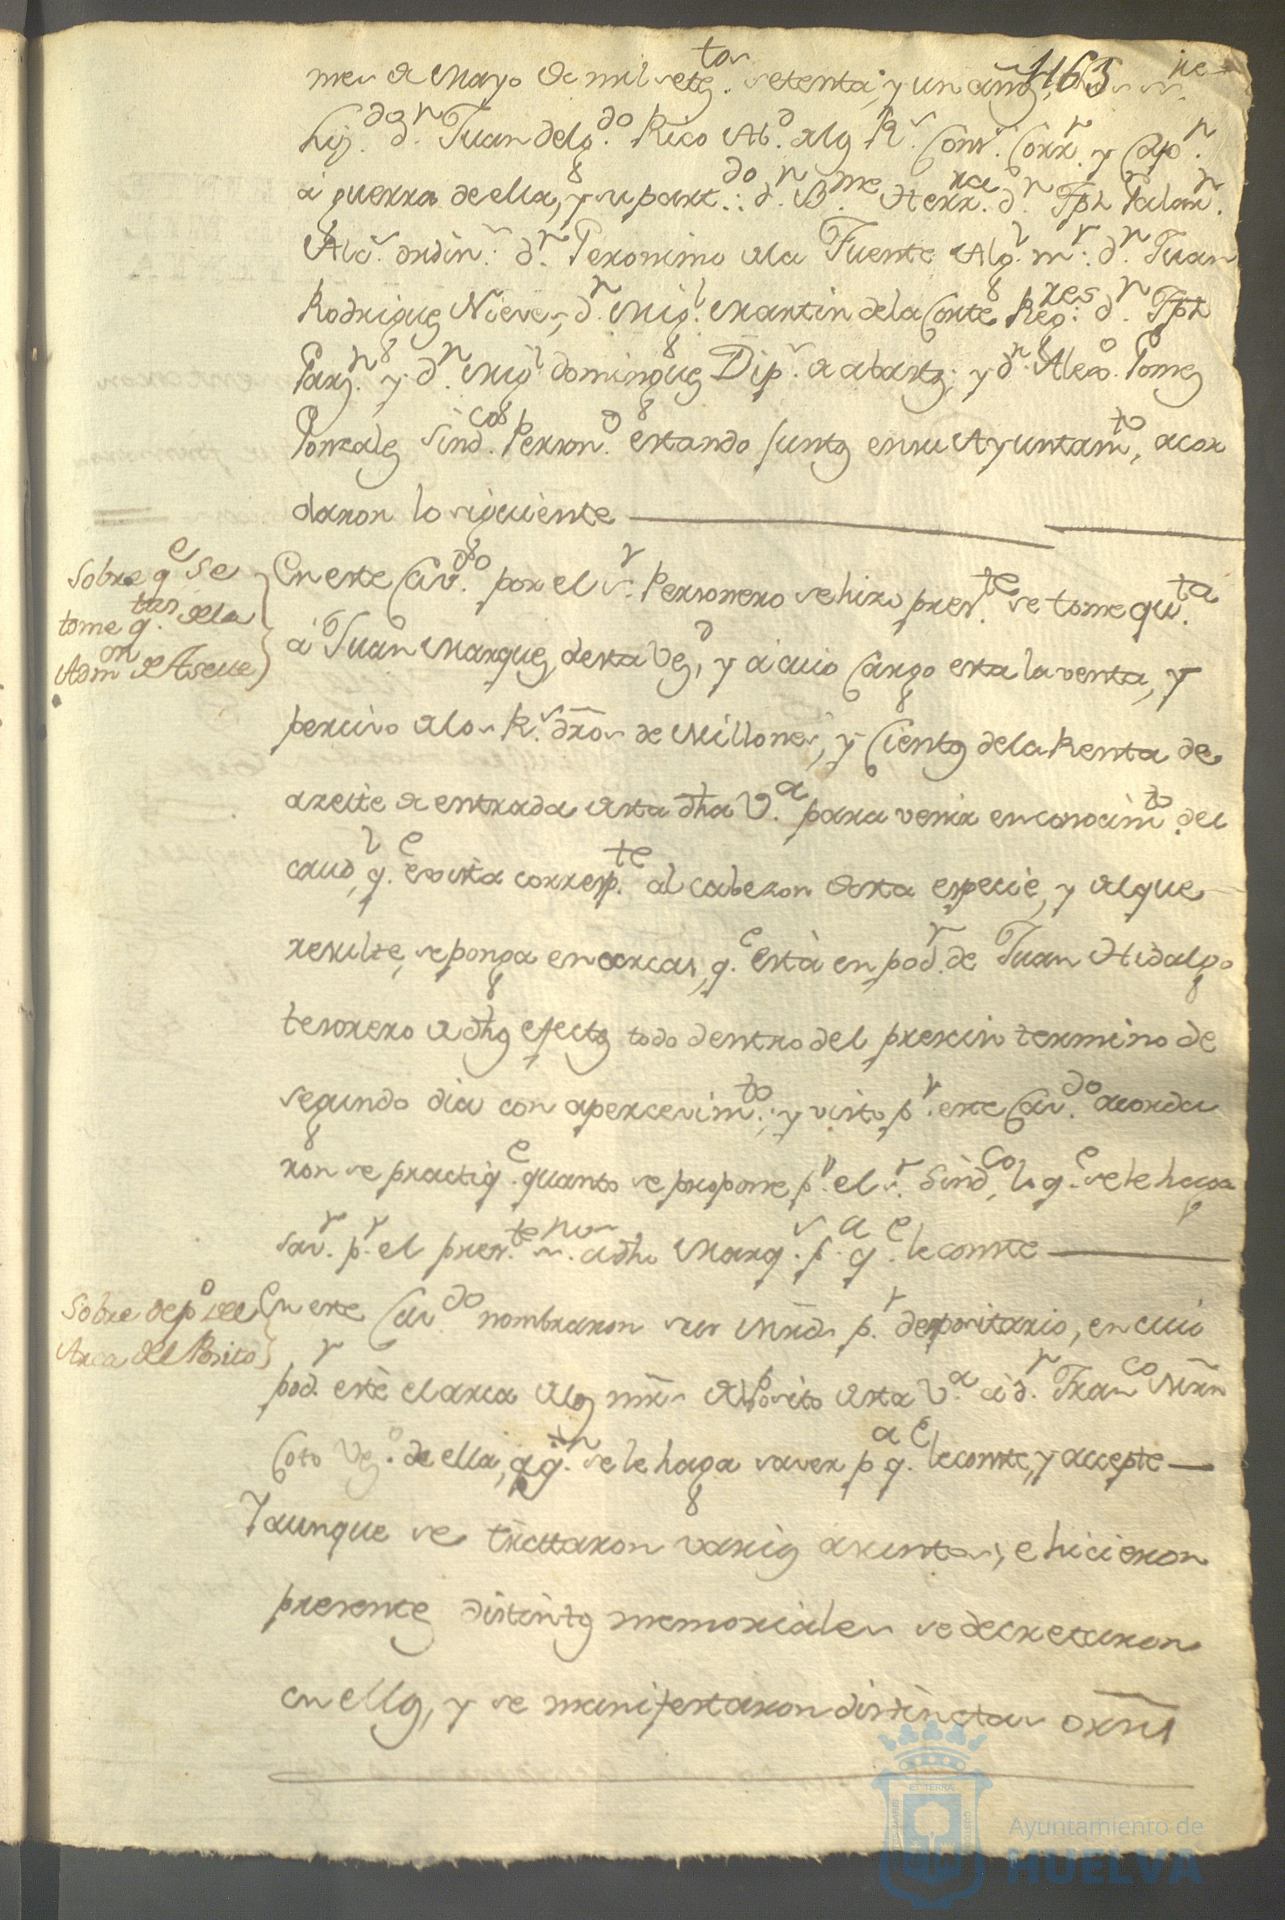 163
mes de Mayo de mil setᵗᵒˢ. setenta, y un años,
Liz.ᵈᵒ dⁿ Juan delg.ᵈᵒ Rico Ab.ᵈ alos R.ˢ Cons.ˢ Corr.ʳ y Cap.ⁿ
á guerra de ella, y su part.ᵈᵒ: dⁿ. B.ᵐᵉ Herr.ʳᵃ dⁿ. Jph Palan.
Alc.ˢ ordin.ˢ dⁿ. Geronimo de la Fuente Alg.ˡ m.ʳ: dⁿ Juan
Rodriguez Nieves, dⁿ. Mig.ˡ Martin de la Corte Reg.ʳᵉˢ dⁿ Jph
y dⁿ Mig.ˡ dominguez Dip.ˢ de abastos; y dⁿ Alexo. Gomez
Gonzales Sind.ᶜᵒ Person.ᵒ estando juntos en su Ayuntam.ᵗᵒ, acor
daron lo siguiente
Sobre q.ᵉ Se
tome q.ᵗᵃˢ de la
Admᵒⁿ de Aseite
En este Cav.ᵈᵒ por el s.ʳ Personero se hizo pres.ᵗᵉ se tome qu.ᵗᵃ
á Juan Marques, desta Vez.ᵈ, y á cuio Cargo esta la venta, y
percivo de los R.ˢ dr̃os de Millones, y Cientos de la Renta de
azeite de entrada desta dh̃a V.ᵃ para venir en conocim.ᵗᵒ del
caud.ˡ, q.ᵉ exista corresp.ᵗᵉ al cabezon desta especie, y el que
resulte, se ponga en arcas, q.ᵉ está en pod.ʳ de Juan Hidalgo
tesorero de dh̃os efectos todo dentro del presciso termino de
segundo dia con apercevim.ᵗᵒ; y visto p.ʳ este Cav.ᵈᵒ acorda
ron se practiq.ᵉ quanto se propone p.ʳ el s.ʳ Sind.ᶜᵒ, lo q.ᵉ se le haga
sav.ʳ p.ʳ el pres.ᵗᵉ a dh̃o Marq.ˢ p.ᵃ q.ᵉ le conste
Sobre depᵒ del
Arca del Posito
En este Cav.ᵈᵒ nombraron sus Mr̃ds p.ʳ depositario, en cuio
pod.ʳ esté el arca de los mr̃s del Posito desta V.ᵃ á d.ⁿ Fran.ᶜᵒ Mr̃n
Coto Vez.ᵒ de ella, á q.ⁿ se le haga saver p.ᵃ q.ᵉ le conste, y accepte
Y aunque se trattaron varios asuntos, e hicieron
presentes distintos memoriales se decretaron
en ellos, y se manifestaron distinctas
ET TERRÆ
Ayuntamiento de
HUELVA